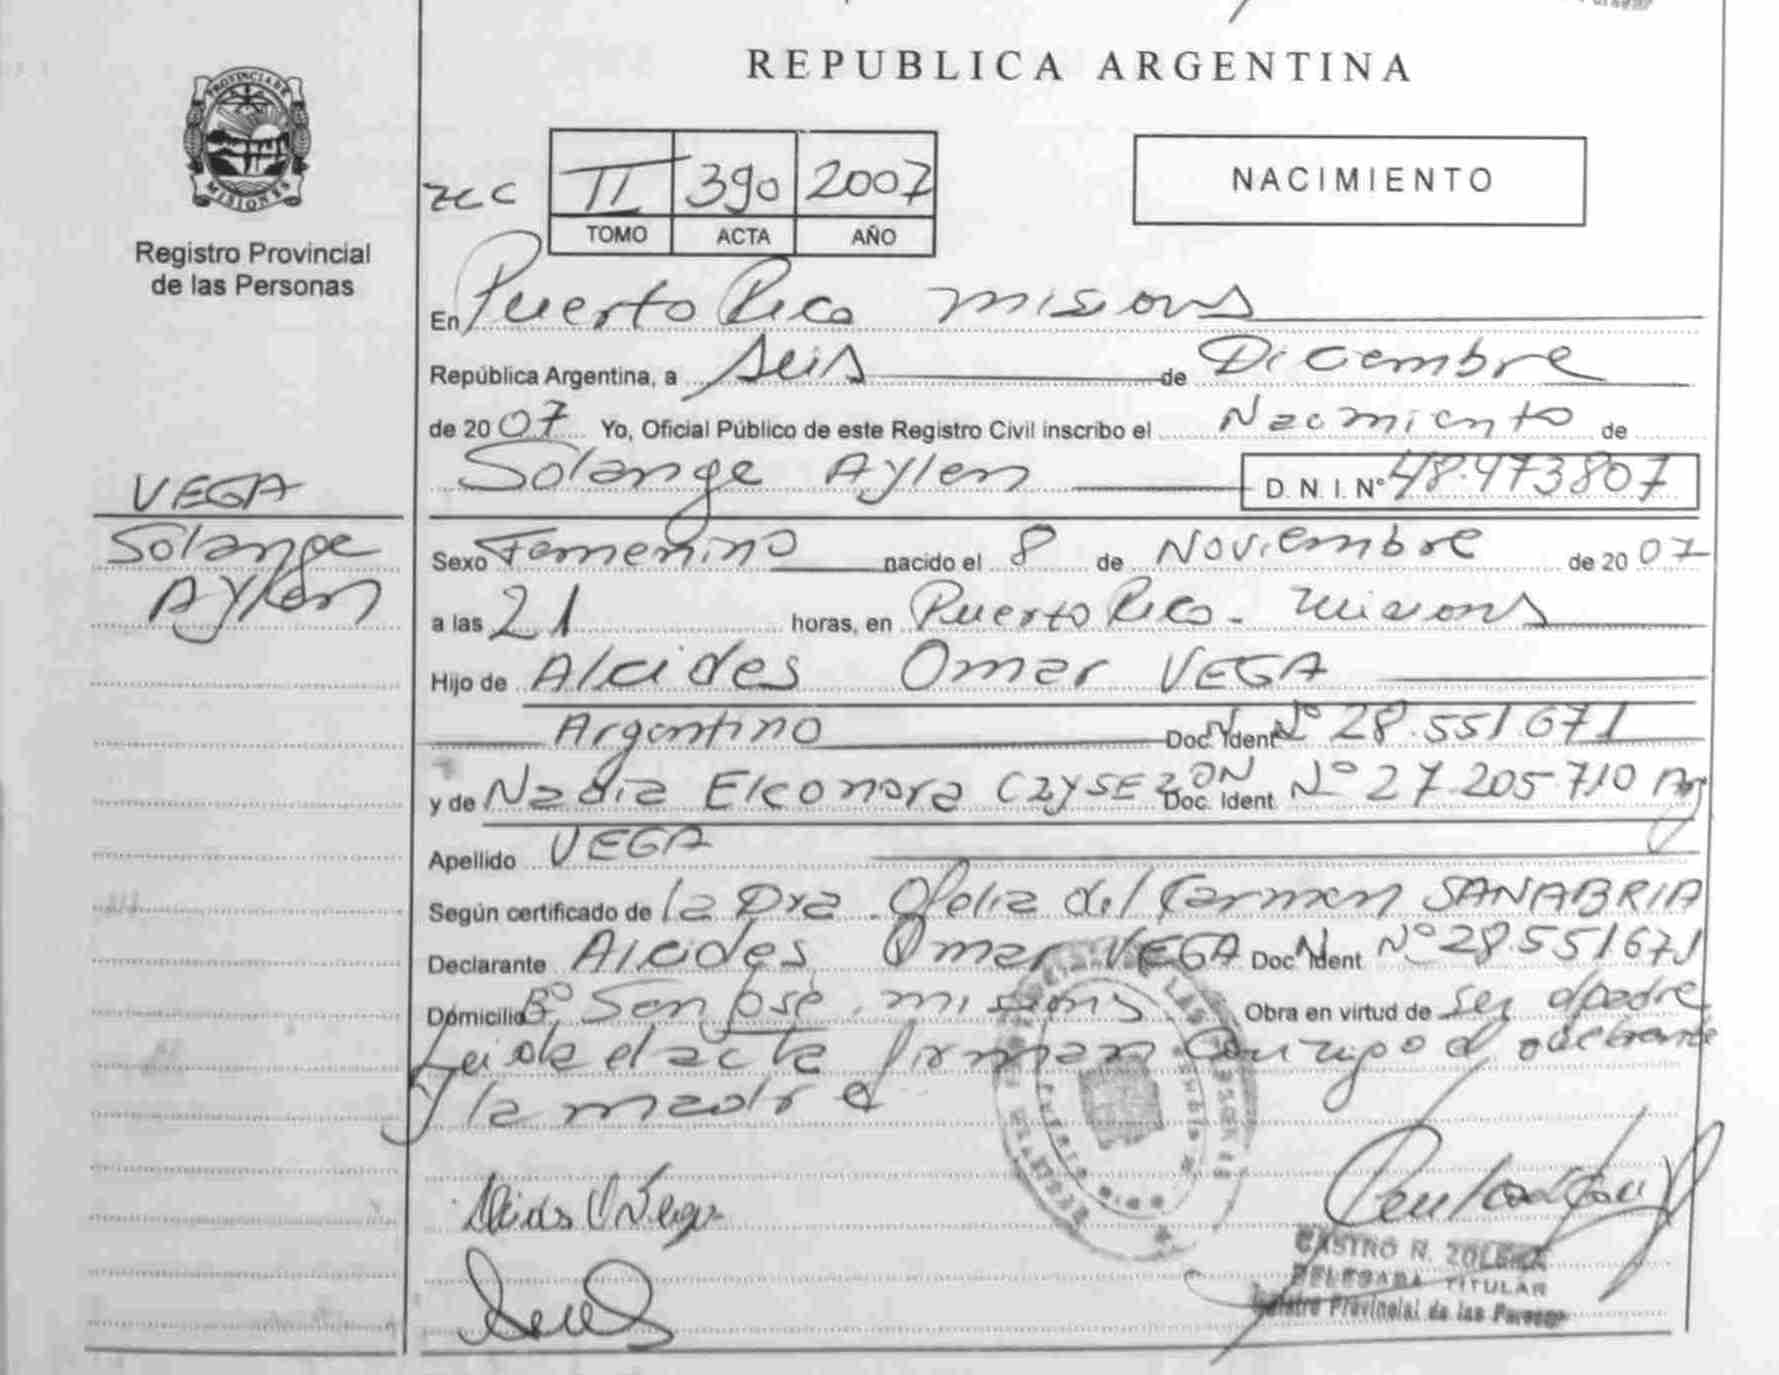 REPUBLICA ARGENTINA
PROVINCIA DE
MISIONES
Registro Provincial
de las Personas
NACIMIENTO
II 390 2007
TOMO ACTA AÑO
En Puerto Rico Misions
República Argentina, a Seis de Diciembre
de 2007 Yo, Oficial Público de este Registro Civil inscribo el Nacimiento de
Solange Aylen D.N.I. Nº 48.473807
VEGA
Solange
Aylen
Sexo Femenino nacido el 8 de Noviembre de 2007
a las 21 horas, en Puerto Rico - Misions
Hijo de Alcides Omar VEGA
Argentino Doc. Ident Nº 28.551671
y de Nadia Eleonora CZYSEZON Doc. Ident. Nº 27.205.710 Arg
Apellido VEGA
Según certificado de la Dra. Ofelia del Carmen SANABRIA
Declarante Alcides Omar VEGA Doc. Ident Nº 28.551671
Domicilio Bº San José. Misions Obra en virtud de ser el padre
Leida el acta firman conmigo el declarante
y la madre
CASTRO N.
DELEGADA TITULAR
Registro Provincial de las Personas